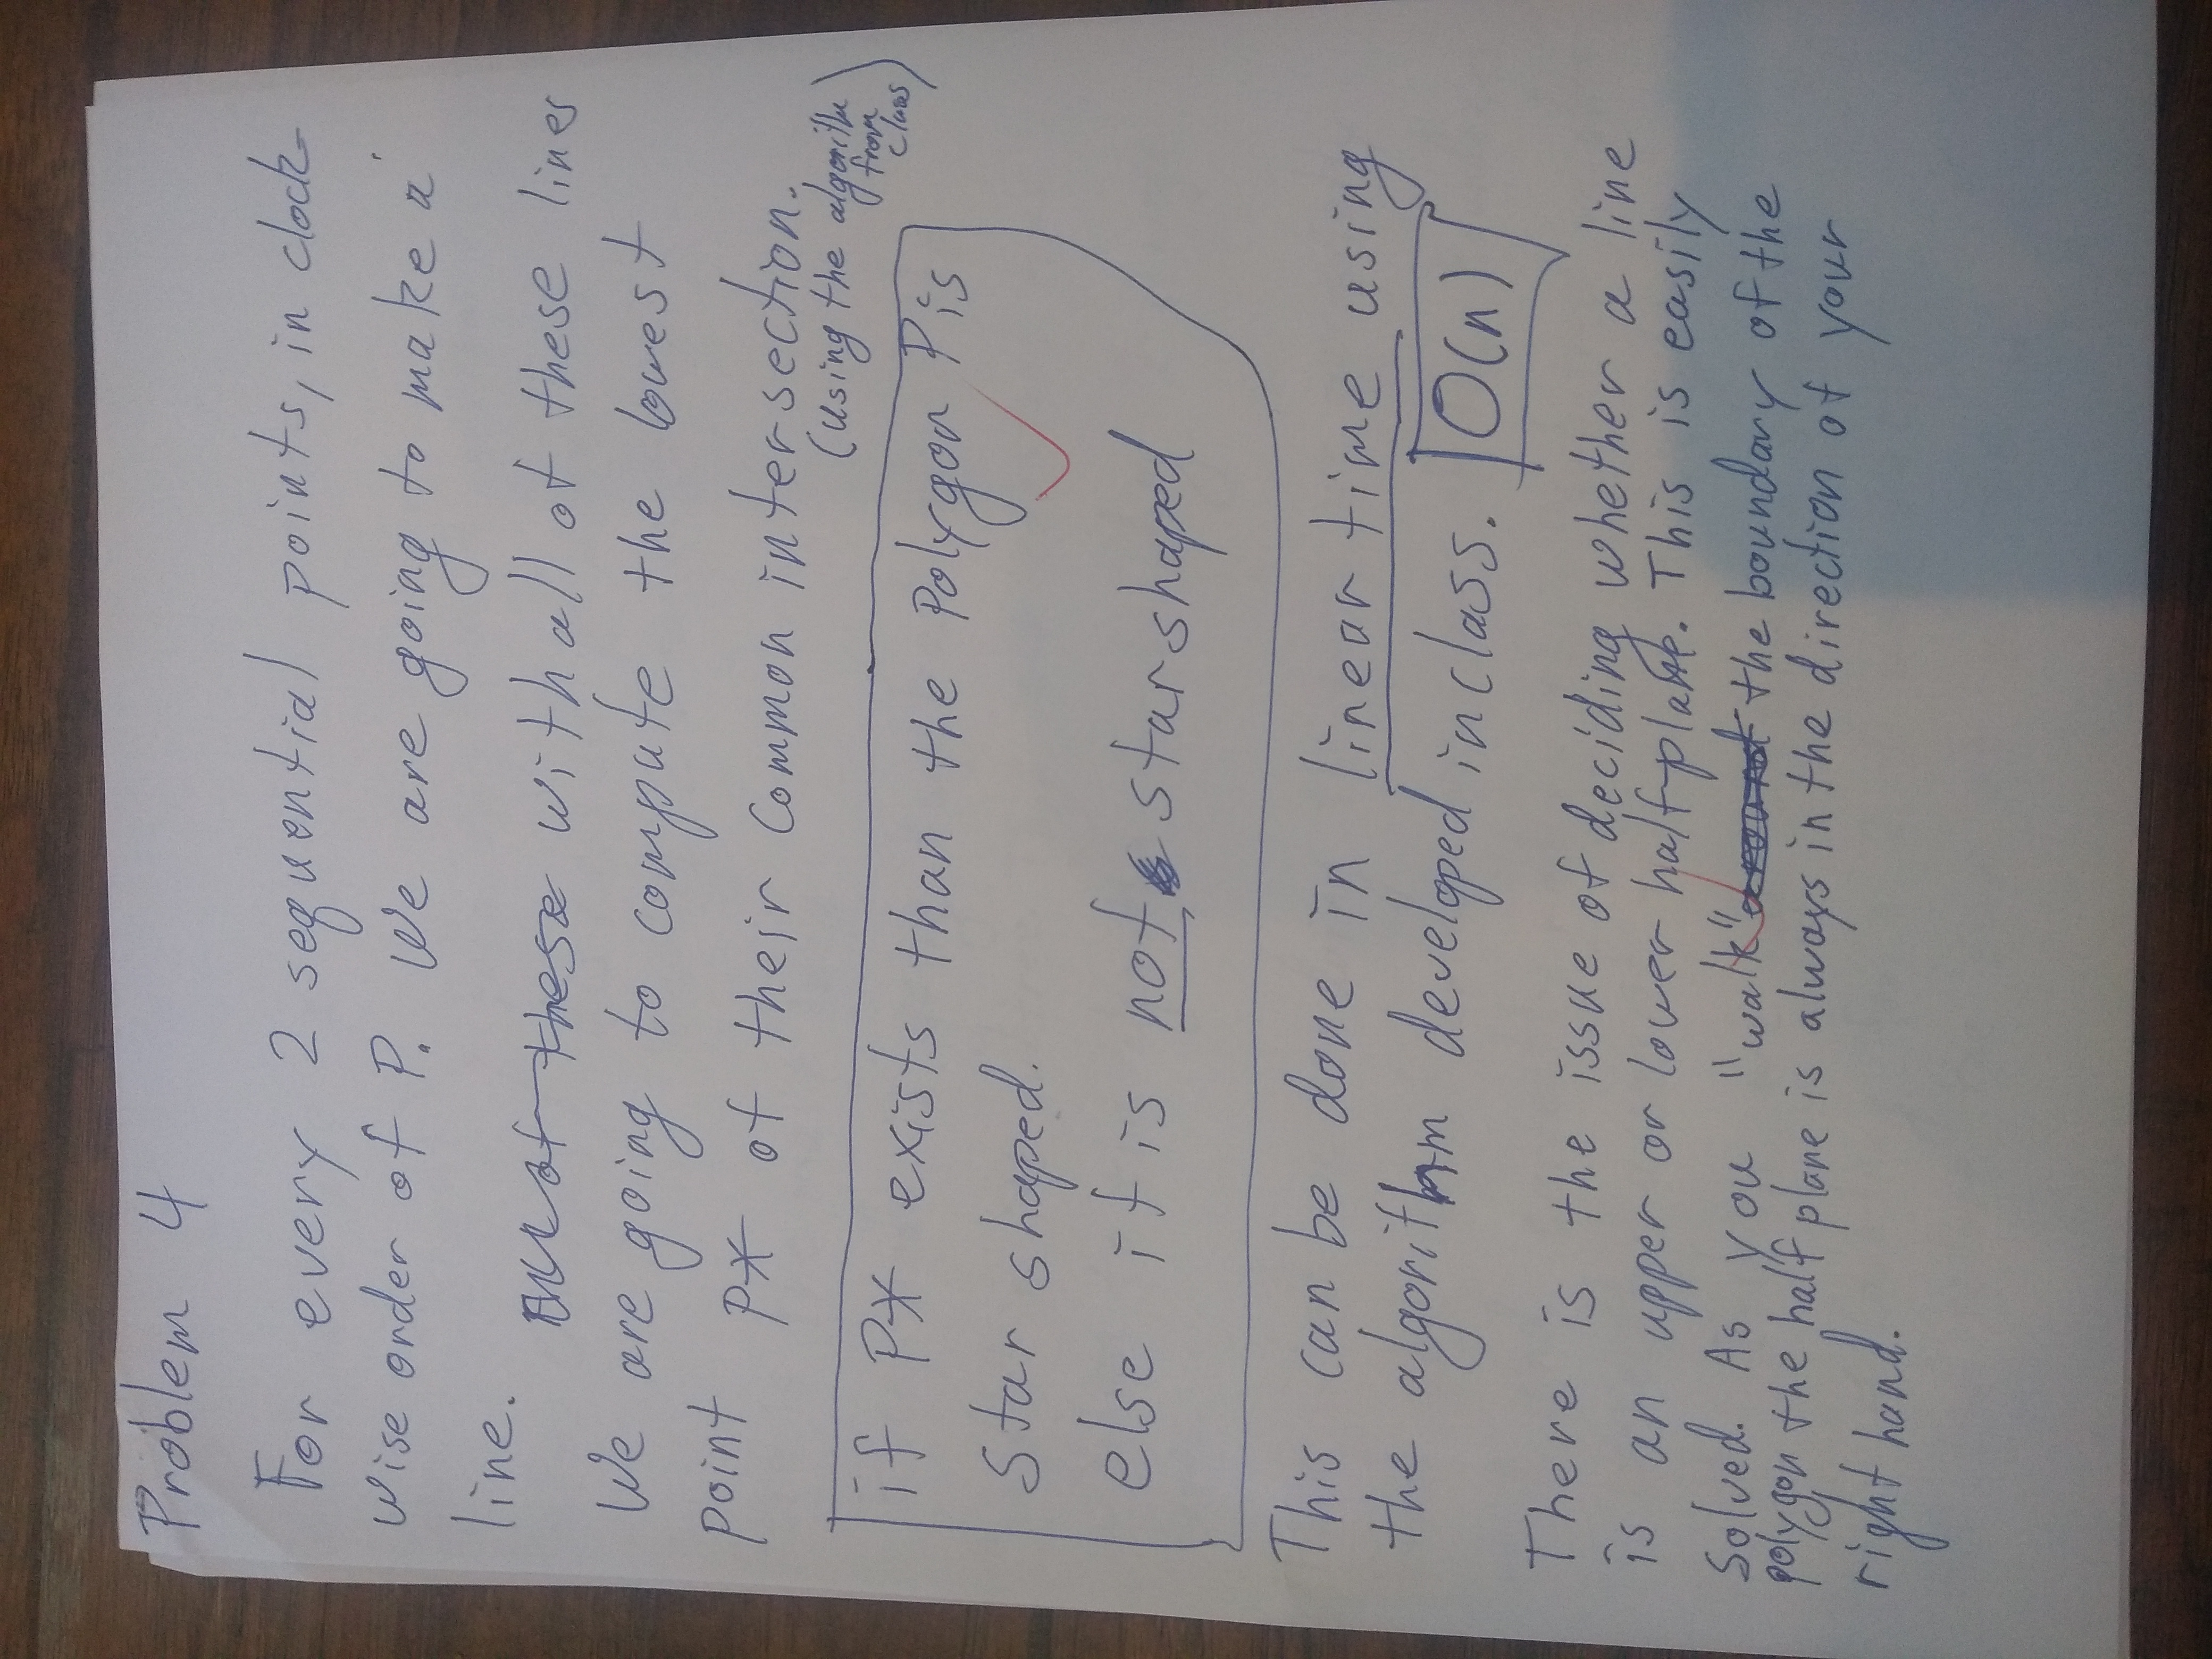 Problem 4
For every 2 sequential points, in clock-
wise order of P. We are going to make a
line.
All of these with all of these lines
We are going to compute the lowest
point P* of their common intersection.
(using the algorithm
from
class)
if P* exists than the Polygon P is
star shaped.
else it is not star shaped
This can be done in linear time using
the algorithm developed in class. O(n)
There is the issue of deciding whether a line
is an upper or lower halfplane. This is easily
solved. As you "walk" around the boundary of the
polygon the half plane is always in the direction of your
right hand.